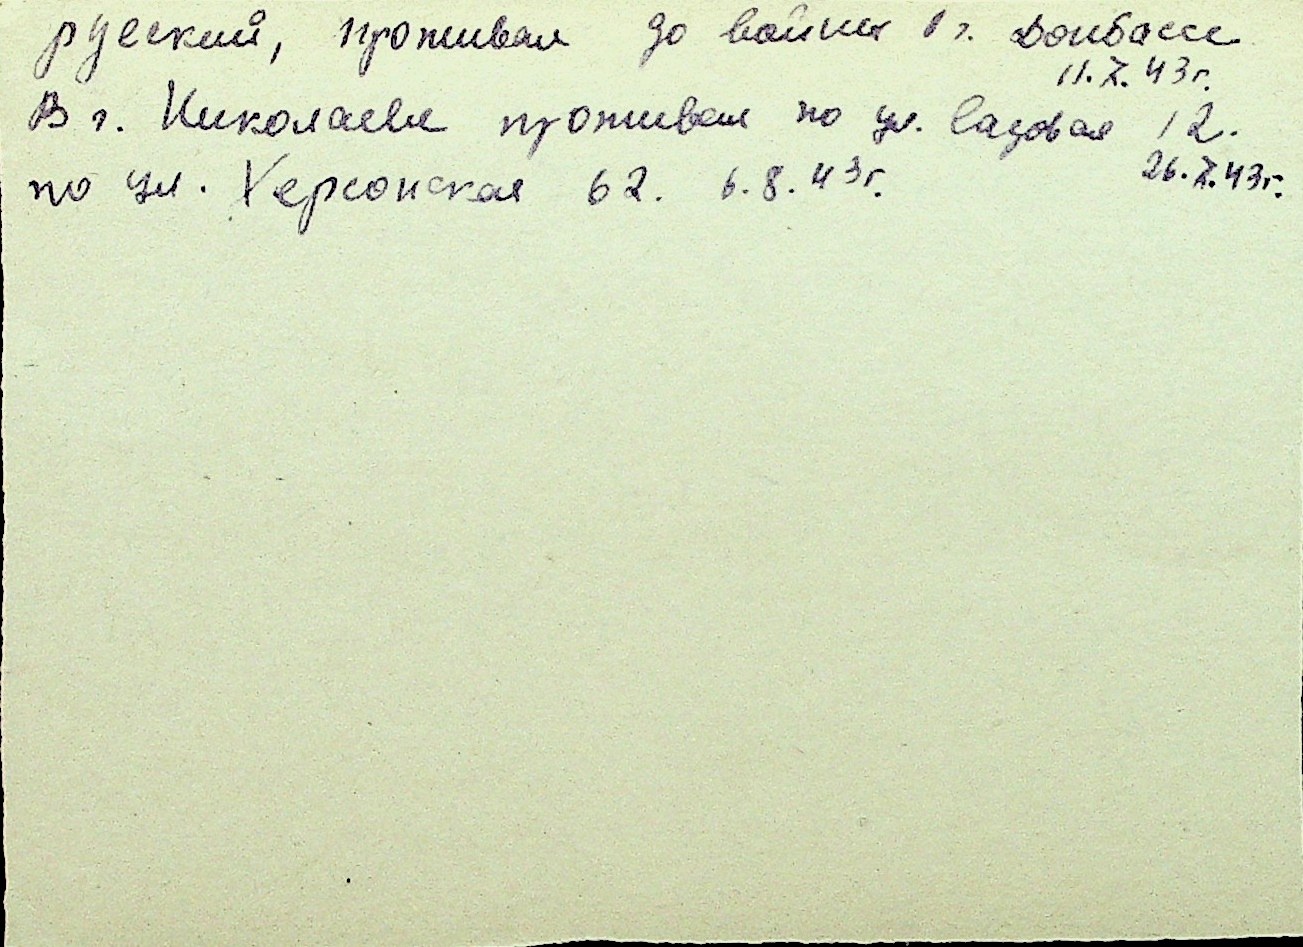 русский, проживал до войны в г. Донбассе
11.X.43г.
В г. Николаеве проживал по ул. Садовая 12.
26.X.43г.
по ул. Херсонская 62. 6.8.43г.